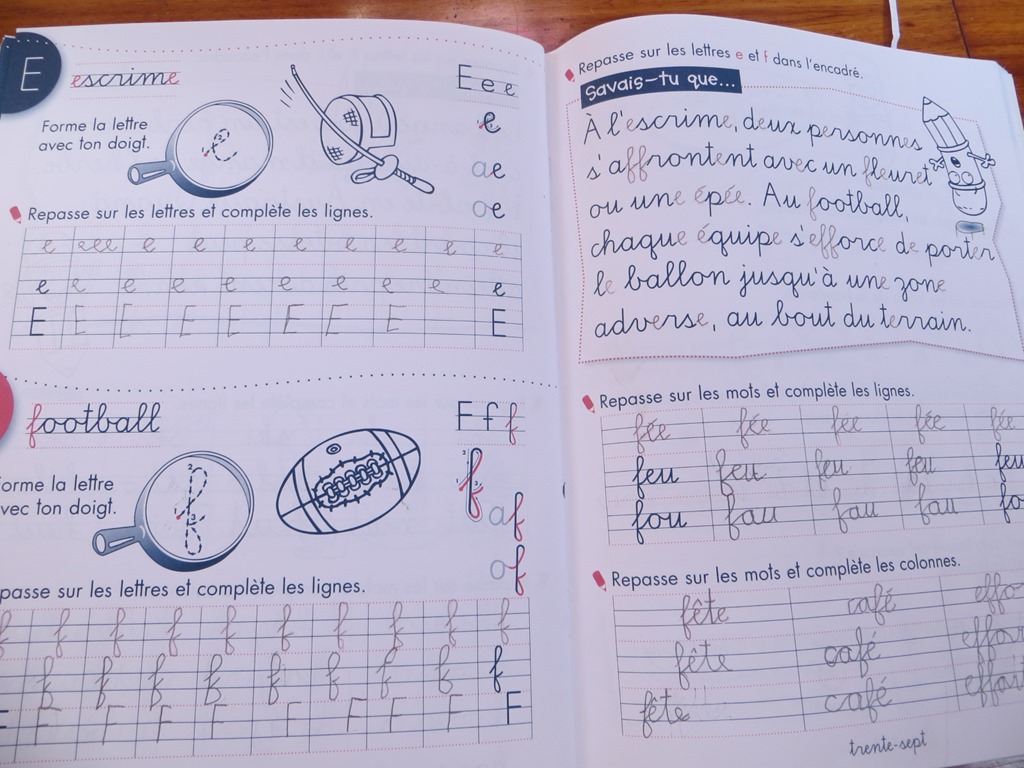 E
escrime
Forme la lettre
avec ton doigt.
e
E e e
e
ae
oe
Repasse sur les lettres et complète les lignes.
e eee e e e e e e e e
e e e e e e e e e
E E E E E E E E E
football
Forme la lettre
avec ton doigt.
f
F f f
f
af
of
Repasse sur les lettres et complète les lignes.
f f f f f f f f f f
f f f f f f f f f
F F F F F F F F F
Repasse sur les lettres e et f dans l'encadré.
Savais-tu que...
À l'escrime, deux personnes
s'affrontent avec un fleuret
ou une épée. Au football,
chaque équipe s'efforce de porter
le ballon jusqu'à une zone
adverse, au bout du terrain.
Repasse sur les mots et complète les lignes.
fée fée fée fée fée
feu feu feu feu feu
fou fau fau fau fo
Repasse sur les mots et complète les colonnes.
fête café effo
fête café
fête café
trente-sept